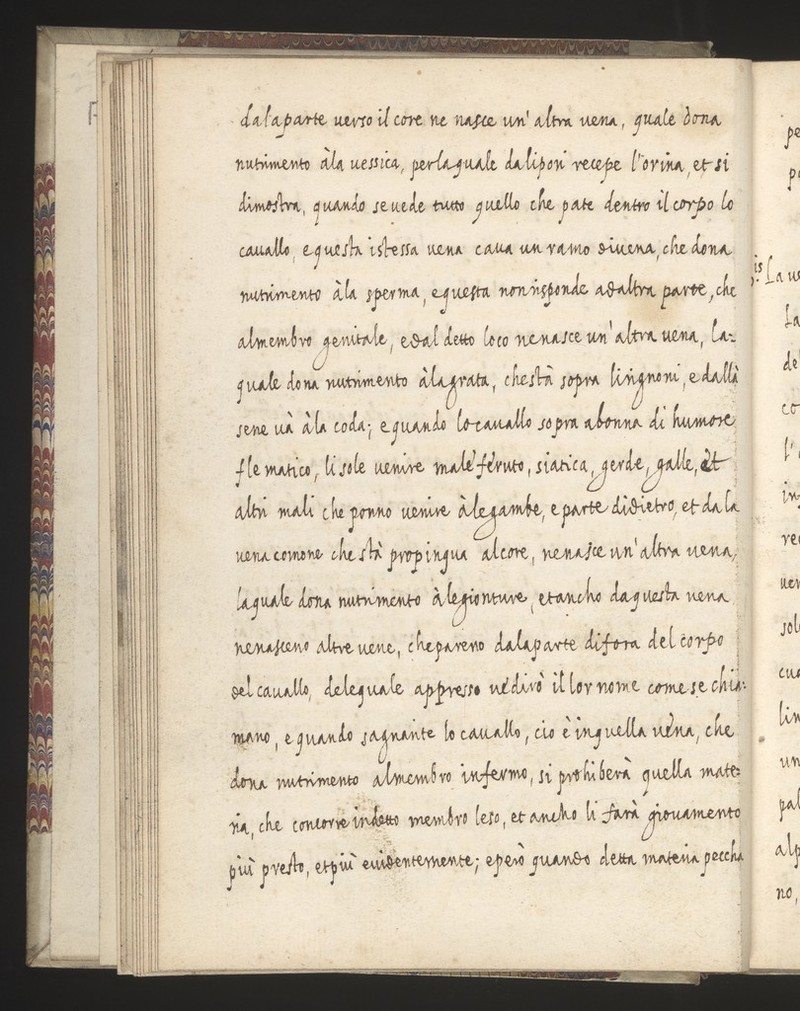 dalaparte uerso il core ne nasce un' altra uena, quale dona
nutrimento àla uessica, perlaquale dalipori recepe l'orina, et si
dimostra, quando seuede tutto quello che pate dentro il corpo lo
cauallo, equesta istessa uena caua un ramo diuena, che dona
nutrimento àla sperma, equesta nonrisponde adaltra parte, che
almembro genitale, edal detto loco nenasce un' altra uena, la=
quale dona nutrimento àlagrata, chestà sopra lirignoni, edallà
sene uà àla coda; equando locauallo sopra abonna di humore
flematico, lisole uenire male feruto, siatica, gerde, galle, et
altri mali che ponno uenire àlegambe, eparte didietro, et dala
uena comone che stà propinqua alcore, nenasce un' altra uena,
laquale dona nutrimento àlegionture, etancho daquesta uena
nenasceno altre uene, chepareno dalaparte difora del corpo
del cauallo, delequale appresso ue dirò il lor nome come se chia=
mano, equando sagnarite lo cauallo, cio è inquella uena, che
dona nutrimento almembro infermo, si prohiberà quella mate=
ria, che concorre indetto membro leso, et ancho li farà giouamento
più presto, etpiù euidentemente; eperò quando detta materia peccha
pe
po
is
La ue
La
de
co
l'
in
re
uen
sol
cua
lin
un
pal
alp
no,